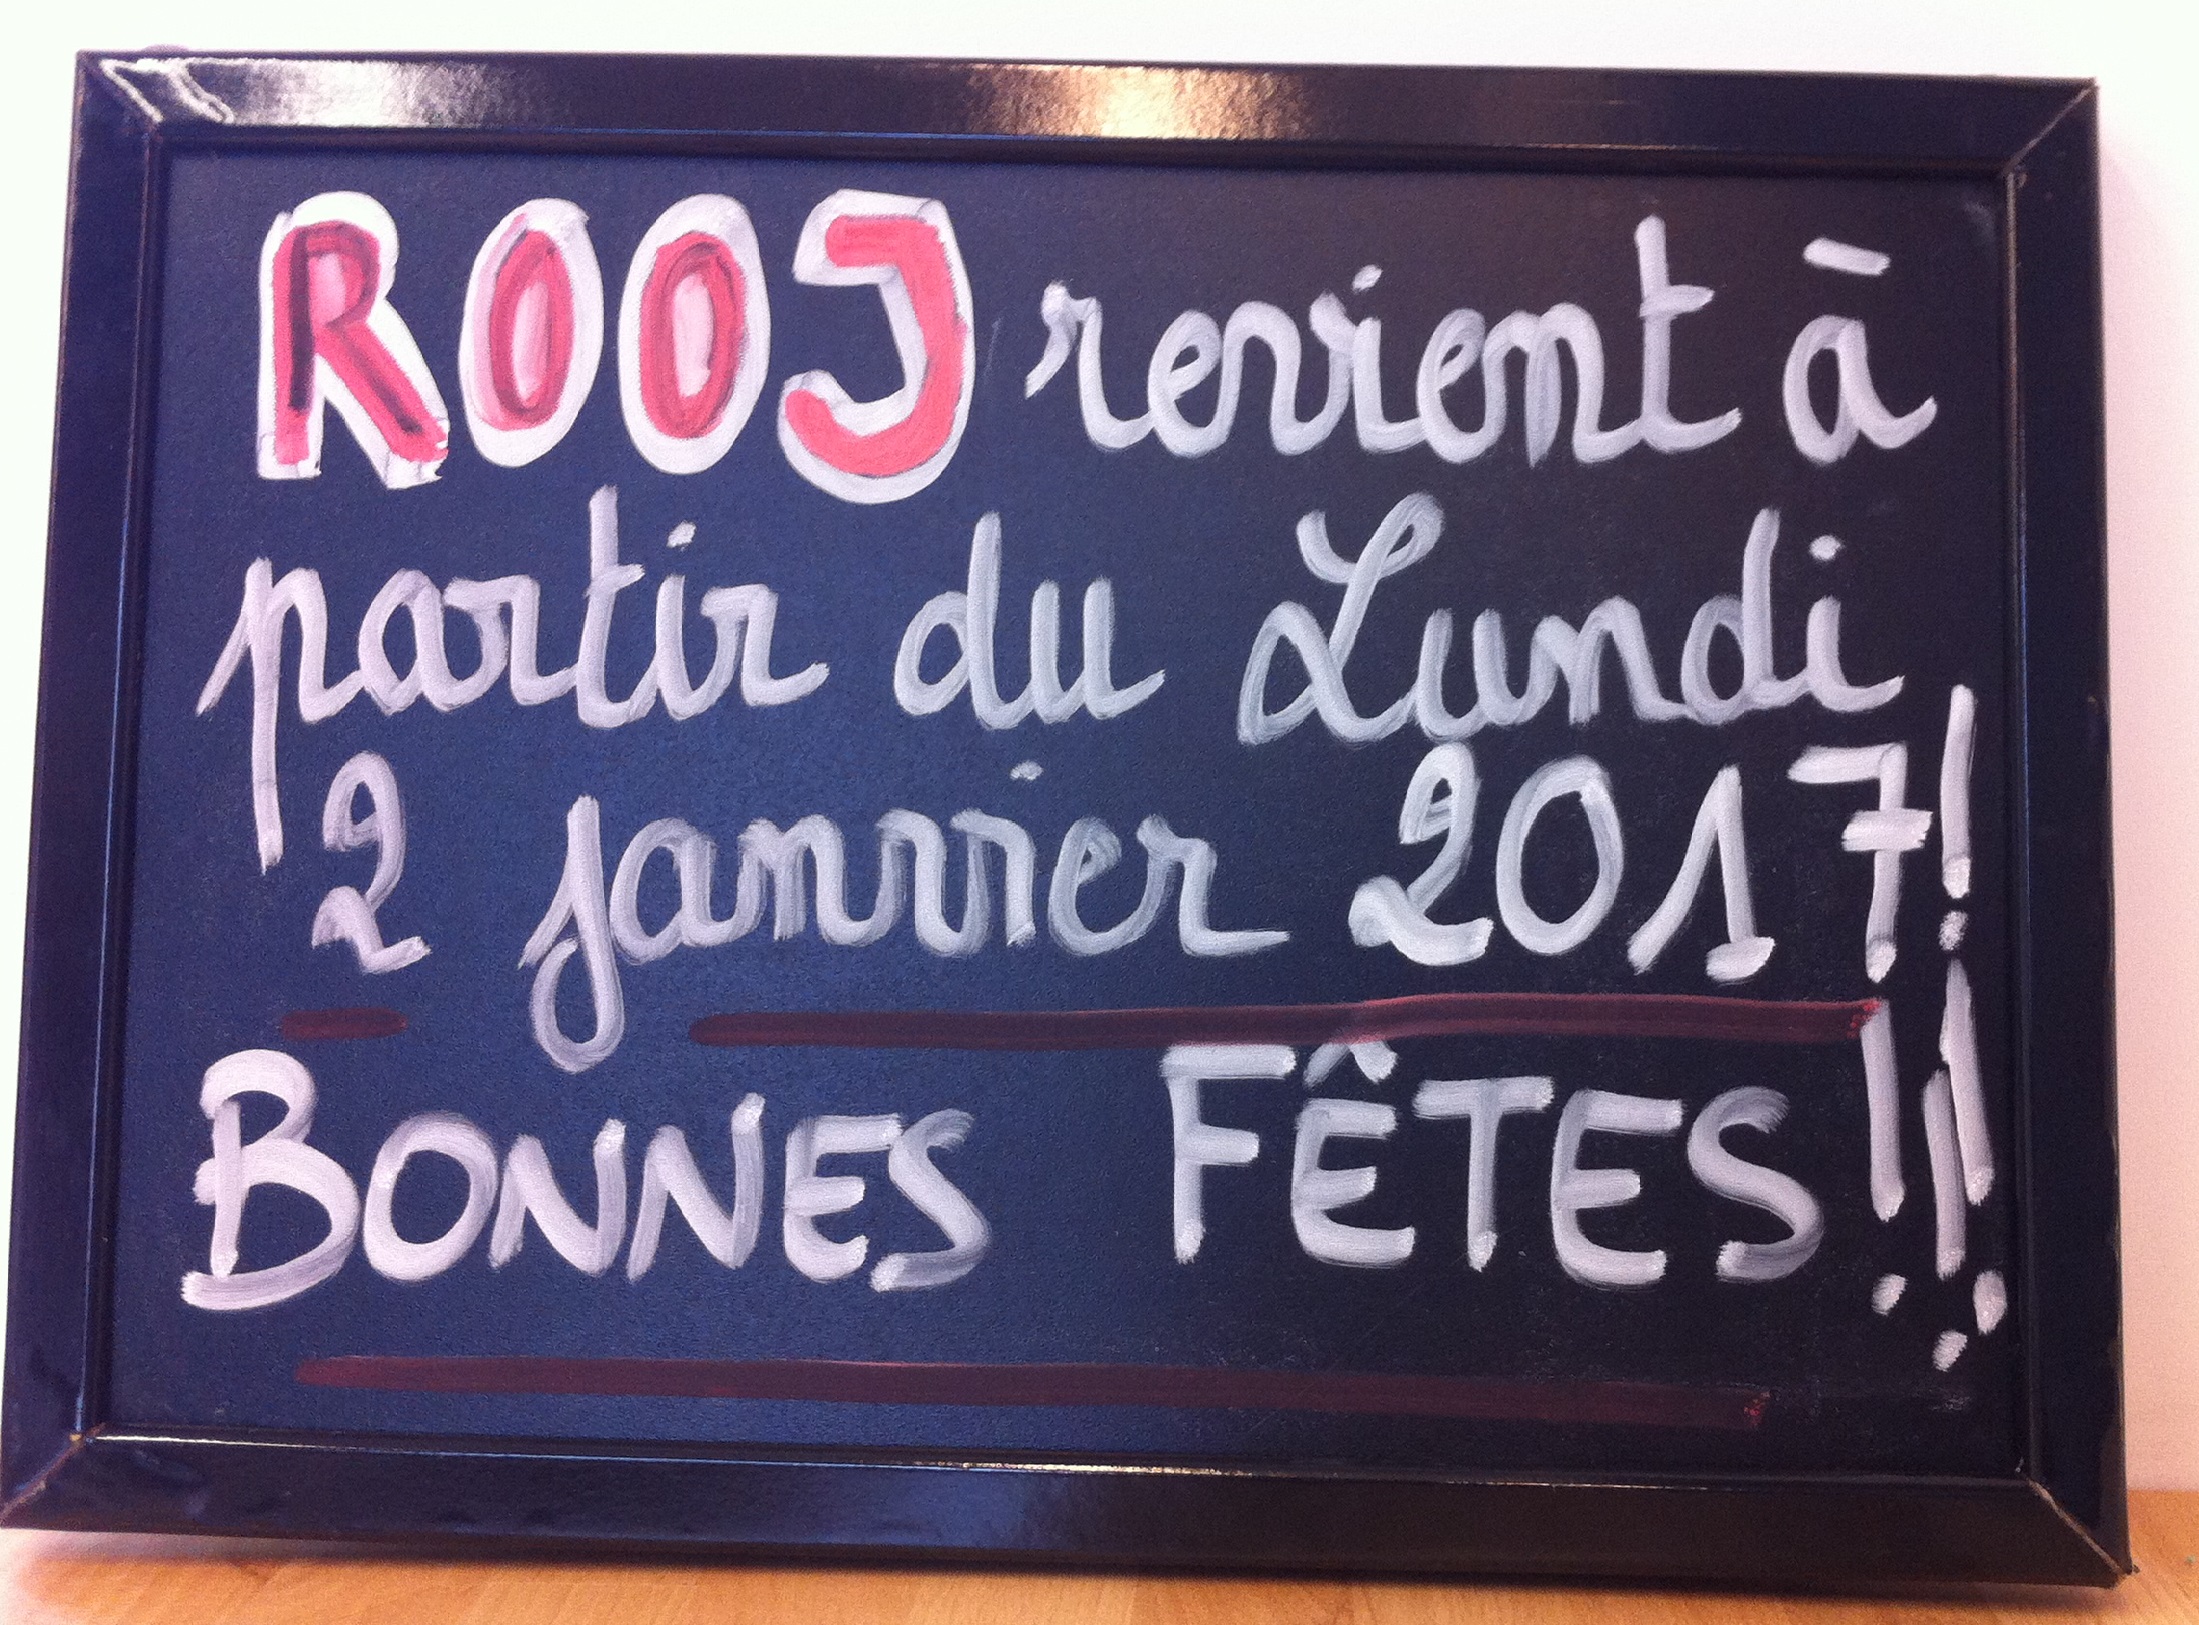 ROOJ revient à
partir du Lundi
2 janvier 2017!
BONNES FÊTES!!!